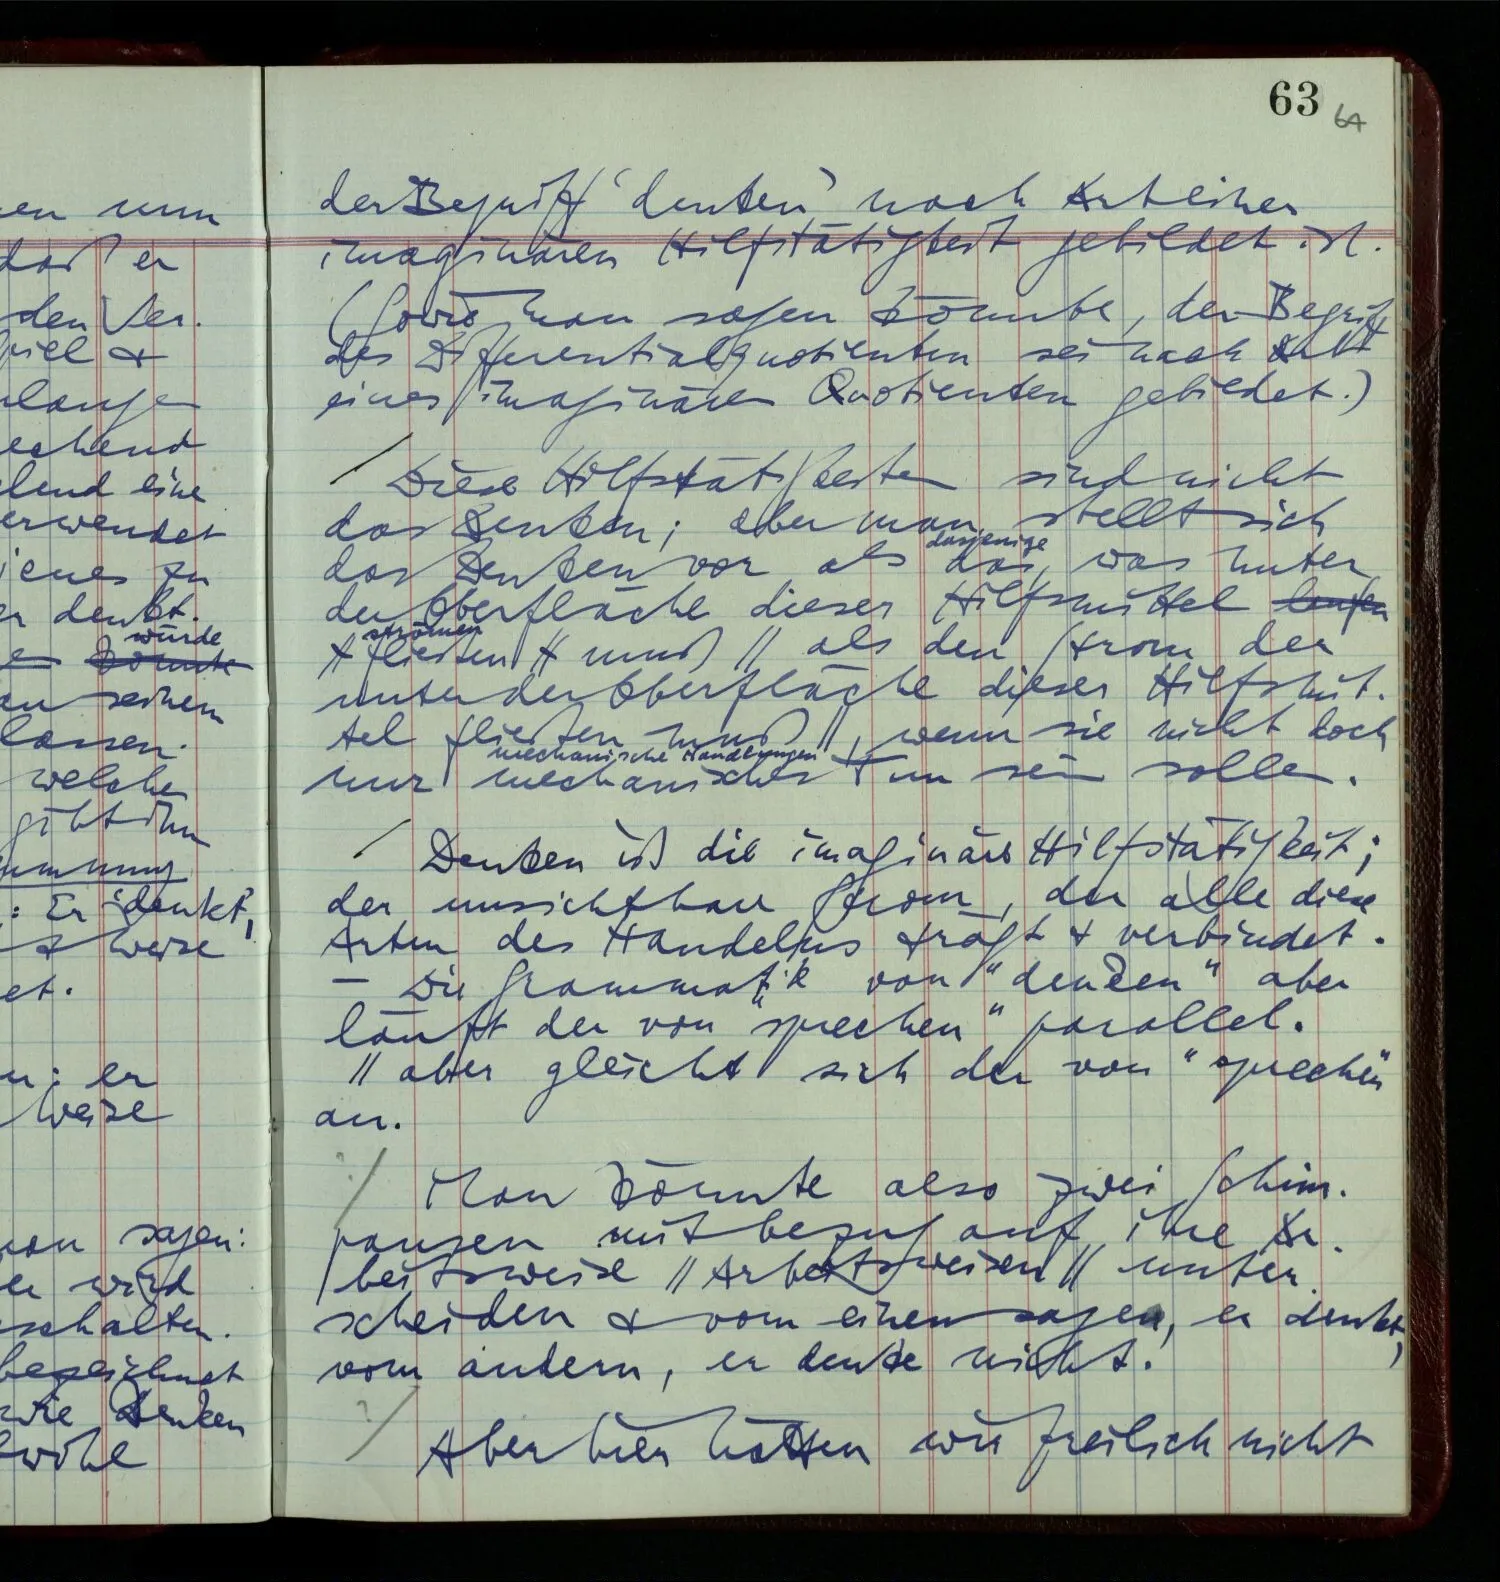 en nun
daß er
den Ver.
spiel &
langen
echend
chend eine
erwendet
jenes zu
er denkt.
würde
könnte
an seinem
lassen.
welche
gibt ihm
immung
: Er 'denkt',
& weise
et.
er
Weise
man sagen:
er wird
schalten.
bezeichnet
wie Denken
wohl
63 64
der Begriff 'denken' nach Art einer
imaginären Hilfstätigkeit gebildet ist.
(Sowie man sagen könnte, der Begriff
des Differentialquotienten sei nach Art
eines imaginären Quotienten gebildet.)
/ Diese Hilfstätigkeiten sind nicht
das Denken; aber man stellt sich
dasjenige
das Denken vor als das, was unter
der Oberfläche dieser Hilfsmittel laufen
strömen
fließen muß // als den Strom der
unter der Oberfläche dieser Hilfsmit.
tel fließen muß //, wenn sie nicht doch
mechanische Handlungen
nur mechanisches Tun sein sollen.
/ Denken ist die imaginäre Hilfstätigkeit;
der unsichtbare Strom, der alle diese
Arten des Handelns trägt & verbindet.
– Die Grammatik von "denken" aber
läuft der von "sprechen" parallel.
// aber gleicht sich der von "sprechen"
an.
?/ Man könnte also zwei Schim.
pansen mit bezug auf ihre Ar.
beitsweise // Arbeitsweisen // unter.
scheiden & vom einen sagen, er denke,
vom andern, er denke nicht.
?/ Aber hier hätten wir freilich nicht